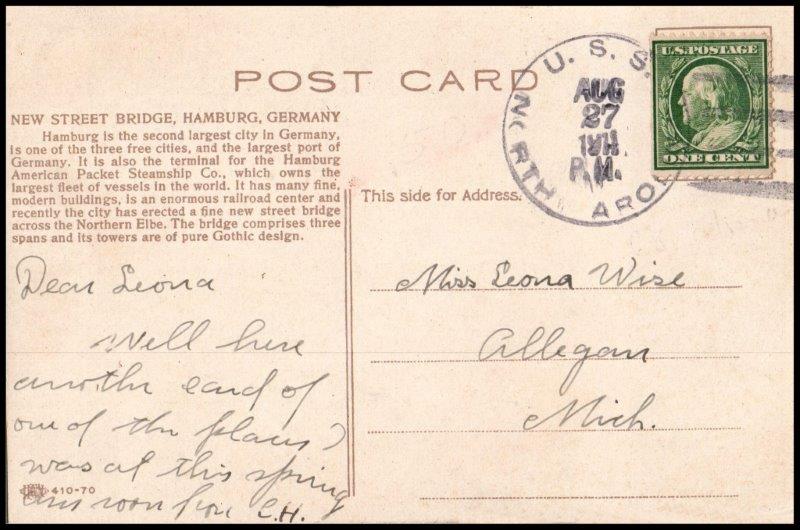 POST CARD
U. S. S.
NORTH CAROL
AUG
27
1911
P.M.
U.S. POSTAGE
ONE CENT
NEW STREET BRIDGE, HAMBURG, GERMANY
Hamburg is the second largest city in Germany,
is one of the three free cities, and the largest port of
Germany. It is also the terminal for the Hamburg
American Packet Steamship Co., which owns the
largest fleet of vessels in the world. It has many fine,
modern buildings, is an enormous railroad center and
recently the city has erected a fine new street bridge
across the Northern Elbe. The bridge comprises three
spans and its towers are of pure Gothic design.
This side for Address.
Dear Leona
Well here
another card of
one of the places I
was at this spring
ans soon from C.H.
410-70
Miss Leona Wise
Allegan
Mich.